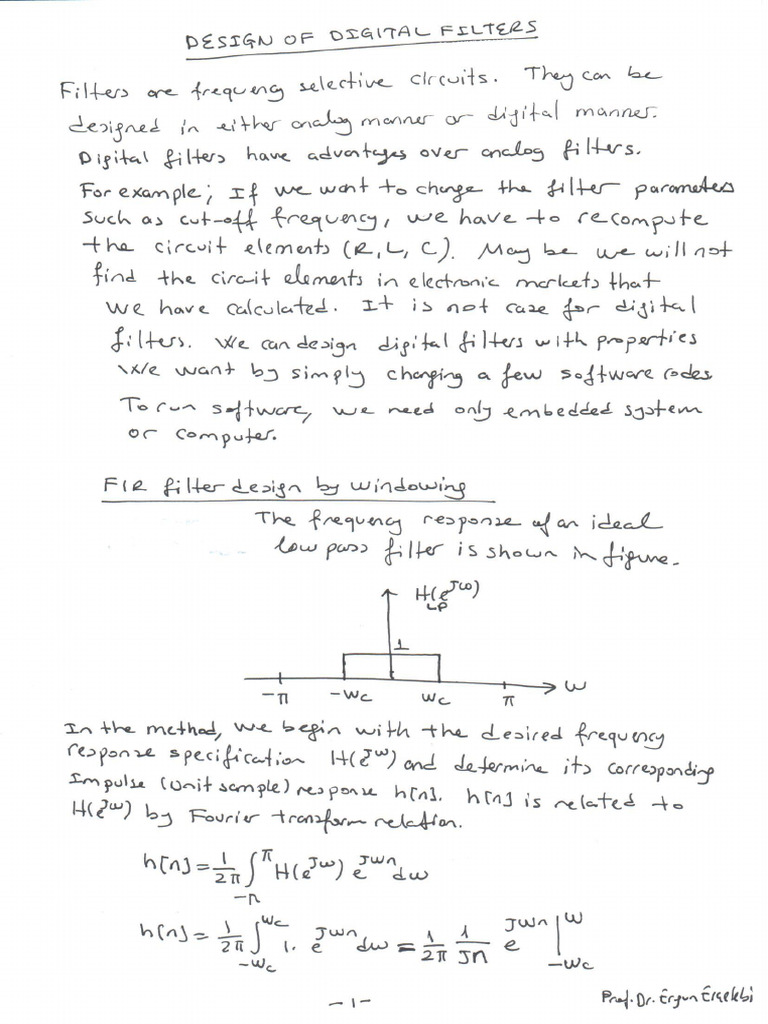 DESIGN OF DIGITAL FILTERS
Filters are frequency selective circuits. They can be
designed in either analog manner or digital manner.
Digital filters have advantages over analog filters.
For example; If we want to change the filter parameters
such as cut-off frequency, we have to recompute
the circuit elements (R, L, C). May be we will not
find the circuit elements in electronic markets that
we have calculated. It is not case for digital
filters. We can design digital filters with properties
We want by simply changing a few software codes
To run software, we need only embedded system
or computer.
FIR filter design by windowing
The frequency response of an ideal
low pass filter is shown in figure.
H_LP(e^{Jω})
1
-π -ωc ωc π ω
In the method, we begin with the desired frequency
response specification H(e^{Jω}) and determine its corresponding
Impulse (unit sample) response h[n]. h[n] is related to
H(e^{Jω}) by Fourier transform relation.
h[n] = 1/2π ∫_{-π}^{π} H(e^{Jω}) e^{Jωn} dω
h[n] = 1/2π ∫_{-ωc}^{ωc} 1. e^{Jωn} dω = 1/2π 1/Jn e^{Jωn} |_{-ωc}^{ω}
-1-
Prof. Dr. Ergun Erçelebi